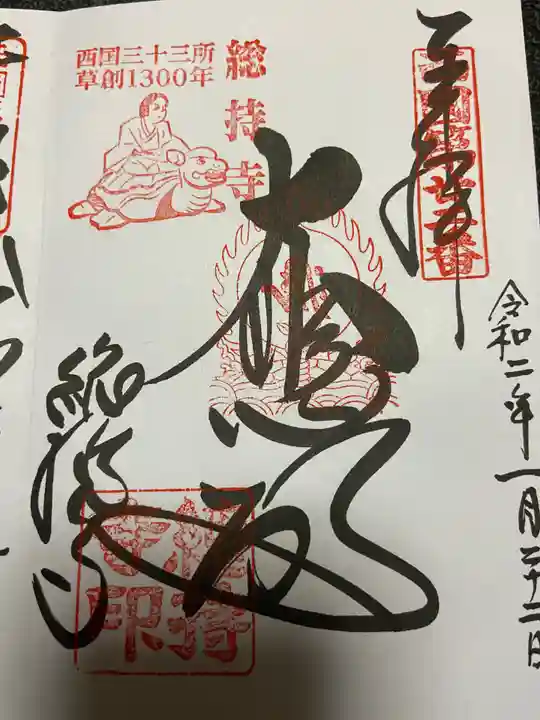 奉拝
西国第廿二番
令和二年一月二十二日
総持寺
西国三十三所
草創1300年
大悲殿
総持寺
総持寺印